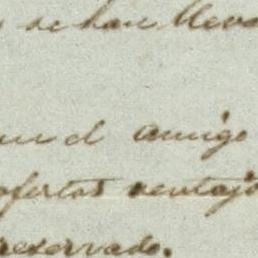 se han lleva
un el amigo
ofertas ventajo
reservado.